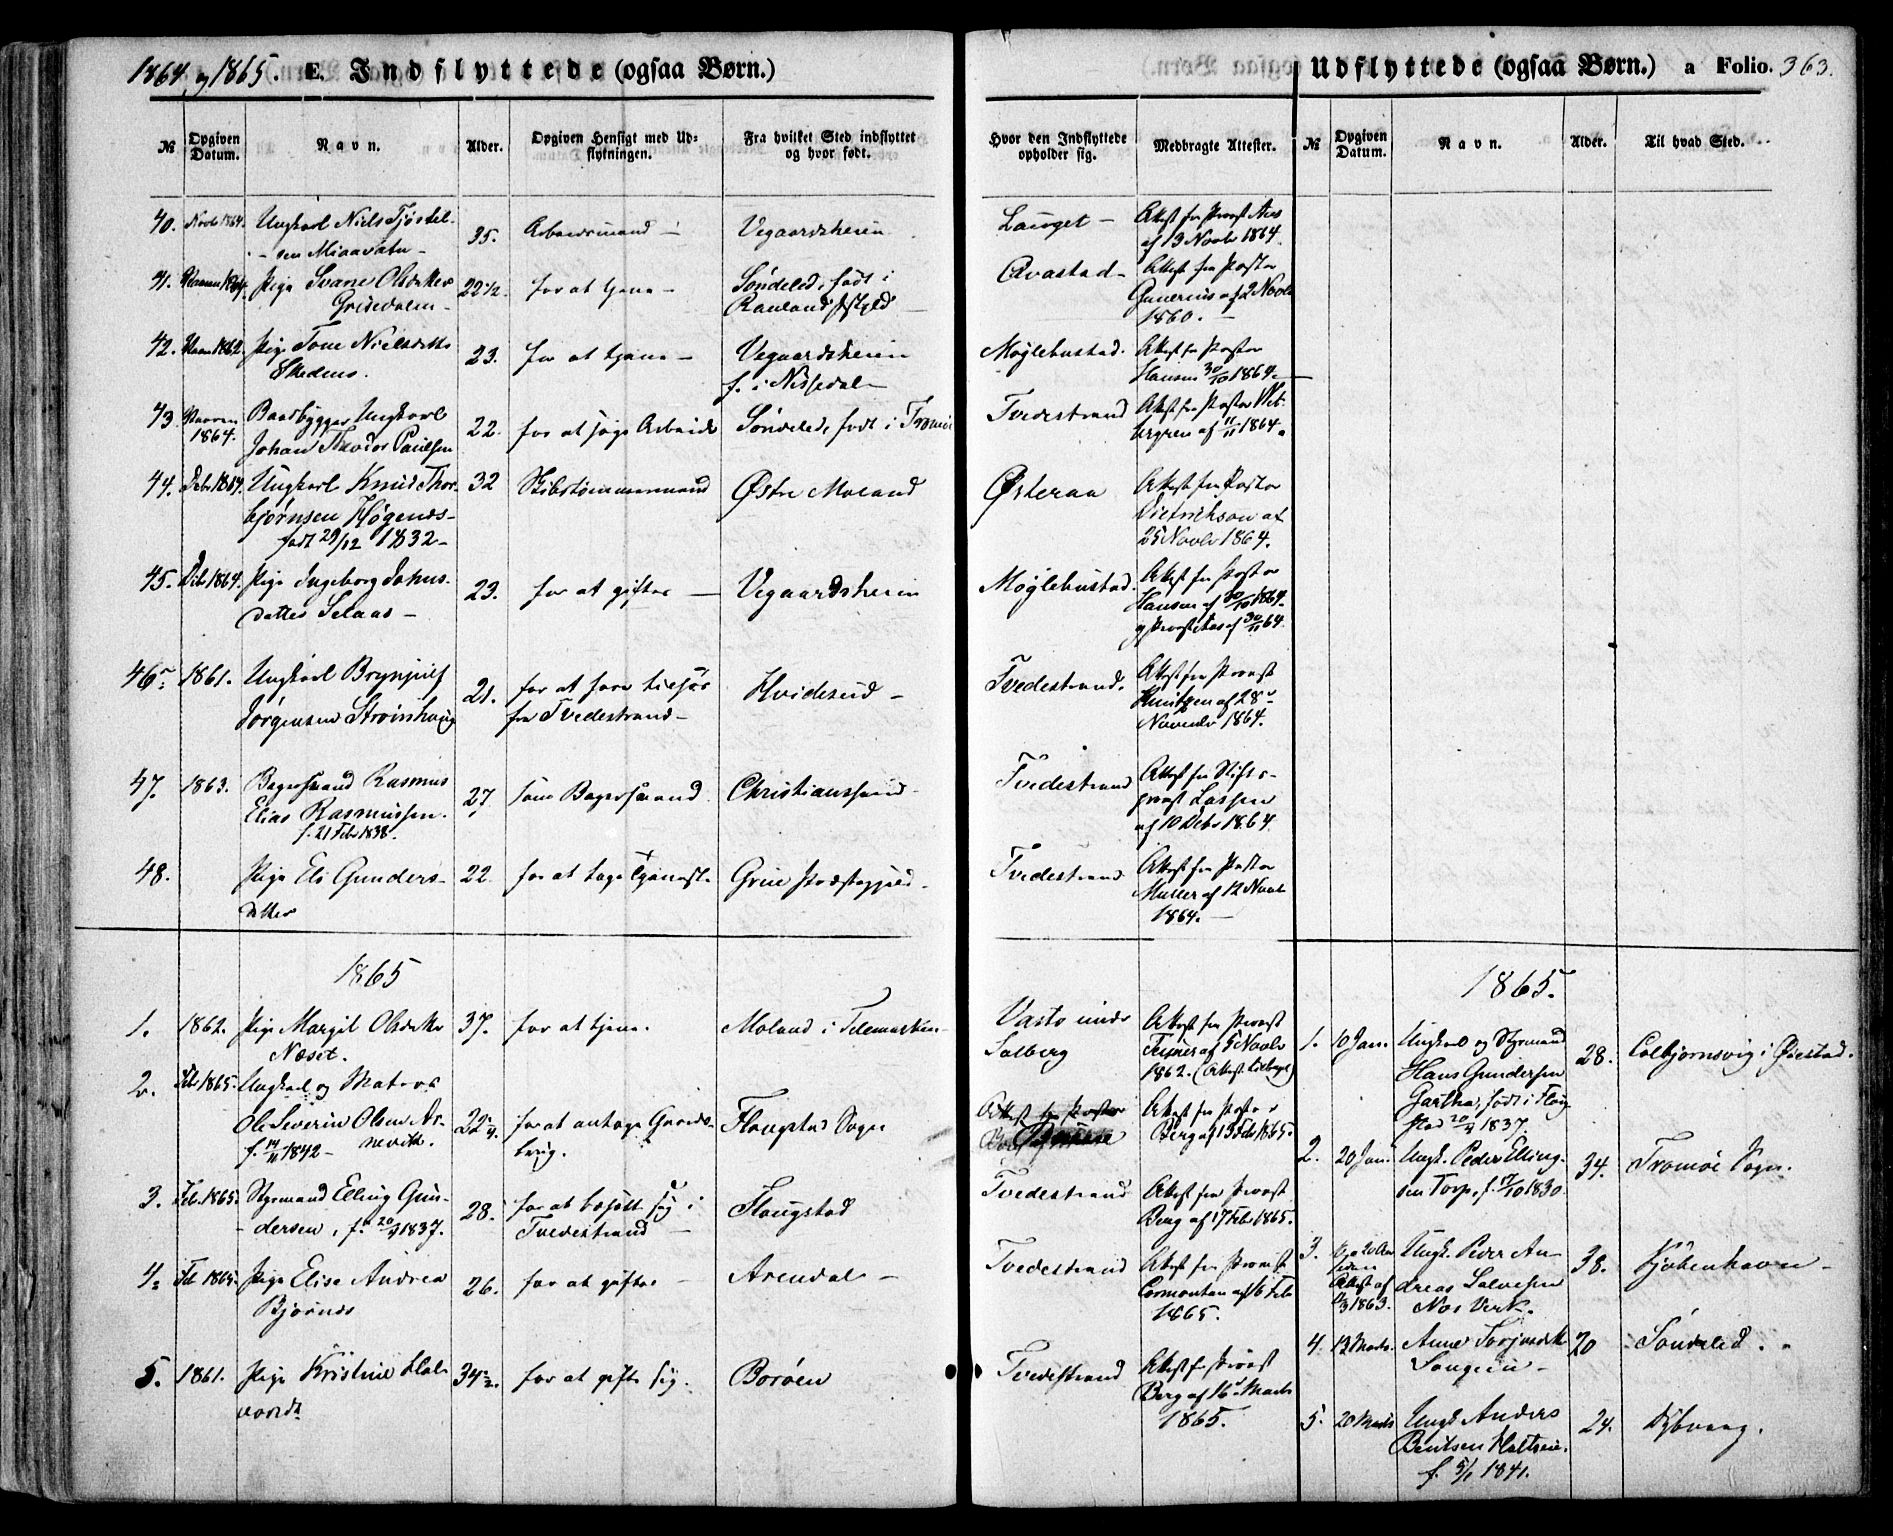 1864 og 1865. E. Indflyttede (ogsaa Børn.)
№ Opgiven Datum. Navn. Alder. Opgiven Hensigt med Udflytningen. Fra hvilket Sted indflyttet og hvor født.
40. Novb 1864. Ungkarl Niels Tjøstel-
sen Miaavatn – 35. Arbeidsmand – Vegaardsheien
41. 1864. Pige Svane Olsdatter
Grisedalen – 22 1/2. for at tjene – Søndeled, født i
Rauland Pstgjld –
42. 1862. Pige Tone Nielsdatter
Skedens. 23. for at tjene – Vegaardsheien
f. i Nissedal –
43. 1864. Baadbygger Ungkarl
Johan Theodor Paulsen 22. for at søge Arbeide Søndeled, født i Tromøe
44. Debr 1864. Ungkarl Knud Thor-
bjørnsen Høgenes –
født 29/12 1832 – 32 Skibstømmermand Østre Moland
45. Debr 1864. Pige Ingeborg Johns-
datter Selaas – 23. for at giftes – Vegaardsheien
46. 1861. Ungkarl Brynjulf
Jørgensen Strømhaug 21. for at fare tilsjøs
fra Tvedestrand – Hvideseid –
47. 1863. Bagersvend Rasmus
Elias Rasmussen.
f. 21 Febr 1838. 27. som Bagersvend Christianssand –
48. Pige Eli Gunders-
datter 22. for at tage Tjeneste Grue Præstegjeld –
1865
1. 1862. Pige Margit Olsdatter
Næset. 37. for at tjene. Moland i Telemarken –
2. Feb 1865. Ungkarl og Matros
Ole Severin Olsen Ar-
f. 14/11 1842 – nevik. 22 1/4. for at antage Gaards-
brug. Flougstad Sogn
3. Feb. 1865. Styrmand Elling Gun-
dersen, f. 20/4 1837. 28. for at bosætte sig i
Tvedestrand – Flougstad
4. Feb 1865. Pige Elise Andrea
Bjørnes 26. for at giftes – Arendal –
5. 1861. Pige Kristine Hal-
vorsdtr 34 1/2. for at gifte sig. Borøen
Udflyttede (ogsaa Børn.) a Folio. 363.
Hvor den Indflyttede opholder sig. Medbragte Attester. № Opgiven Datum. Navn. Alder. Til hvad Sted.
Lauget – Attest fra Provst Aas
af 13 Novbr 1864.
Avastad – Attest fra Pastor
Gunerius af 2 Novbr
1860. –
Møglebustad. Attest fra Pastor
Hansen 30/10 1864. –
Tvedestrand Attest fra Pastor
af 11/11 1864.
Østeraa Attest fra Pastor
Dietrichson af
25 Novbr 1864.
Møglebustad. Attest fra Pastor
Hansen af 30/10 1864.
og Provst Aas af 30/11 64.
Tvedestrand. Attest fra Provst
af 28
Novembr 1864.
Tvedestrand Attest fra Stifts-
provst Lassen
af 10 Debr 1864.
Tvedestrand Attest fra Pastor
Müller af 12 Novbr
1864. –
1865.
Vasto under
Solberg Attest fra Provst
af 5 Novbr
1862. (Attest tilbage)
Attest fra Pastor
Attest fra Pastor
Berg af 13 Feb 1865.
Tvedestrand Attest fra Provst
Berg af 17 Feb 1865.
Tvedestrand Attest fra Provst
Cormontan af 16 Feb
1865.
Tvedestrand Attest fra Provst
Berg af 16 Marts
1865.
1. 10 Jan. Ungkarl og Styrmand
Hans Gundersen
Gartha, født i Floug-
stad 20/4 1837. 28. Colbjørnsvig i Øiestad.
2. 20 Jan. Ungk. Peder Elling-
sen Torp, f. 17/10 1830. 34. Tromøe Sogn.
3. Attest af
1863. Ungk. Peder An-
dreas Salvesen
Næs Verk. 38. Kjøbenhavn –
4. 13 Marts. Anne Torjusdtr
Songeiie – 20 Søndeled.
5. 20 Marts Ungk Anders
Bentsen Holtzeie.
f. 5/1 1841. 24. Dybvaag.